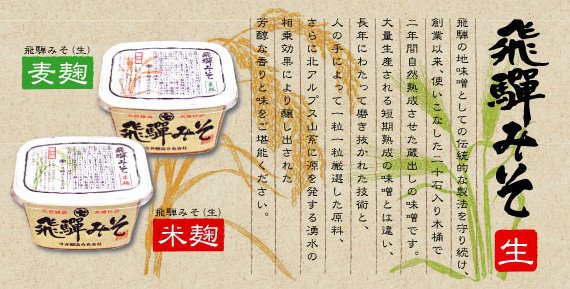 飛騨みそ
生
飛騨の地味噌としての伝統的な製法を守り続け、
創業以来、使いこなした二十石入り木桶で
二年間自然熟成させた蔵出しの味噌です。
大量生産される短期熟成の味噌とは違い、
長年にわたって磨き抜かれた技術と、
人の手によって一粒一粒厳選した原料、
さらに北アルプス山系に源を発する湧水の
相乗効果により醸し出された
芳醇な香りと味をご堪能ください。
飛騨みそ(生)
麦麹
飛騨みそ
飛騨みそ
飛騨みそ
飛騨みそ(生)
米麹